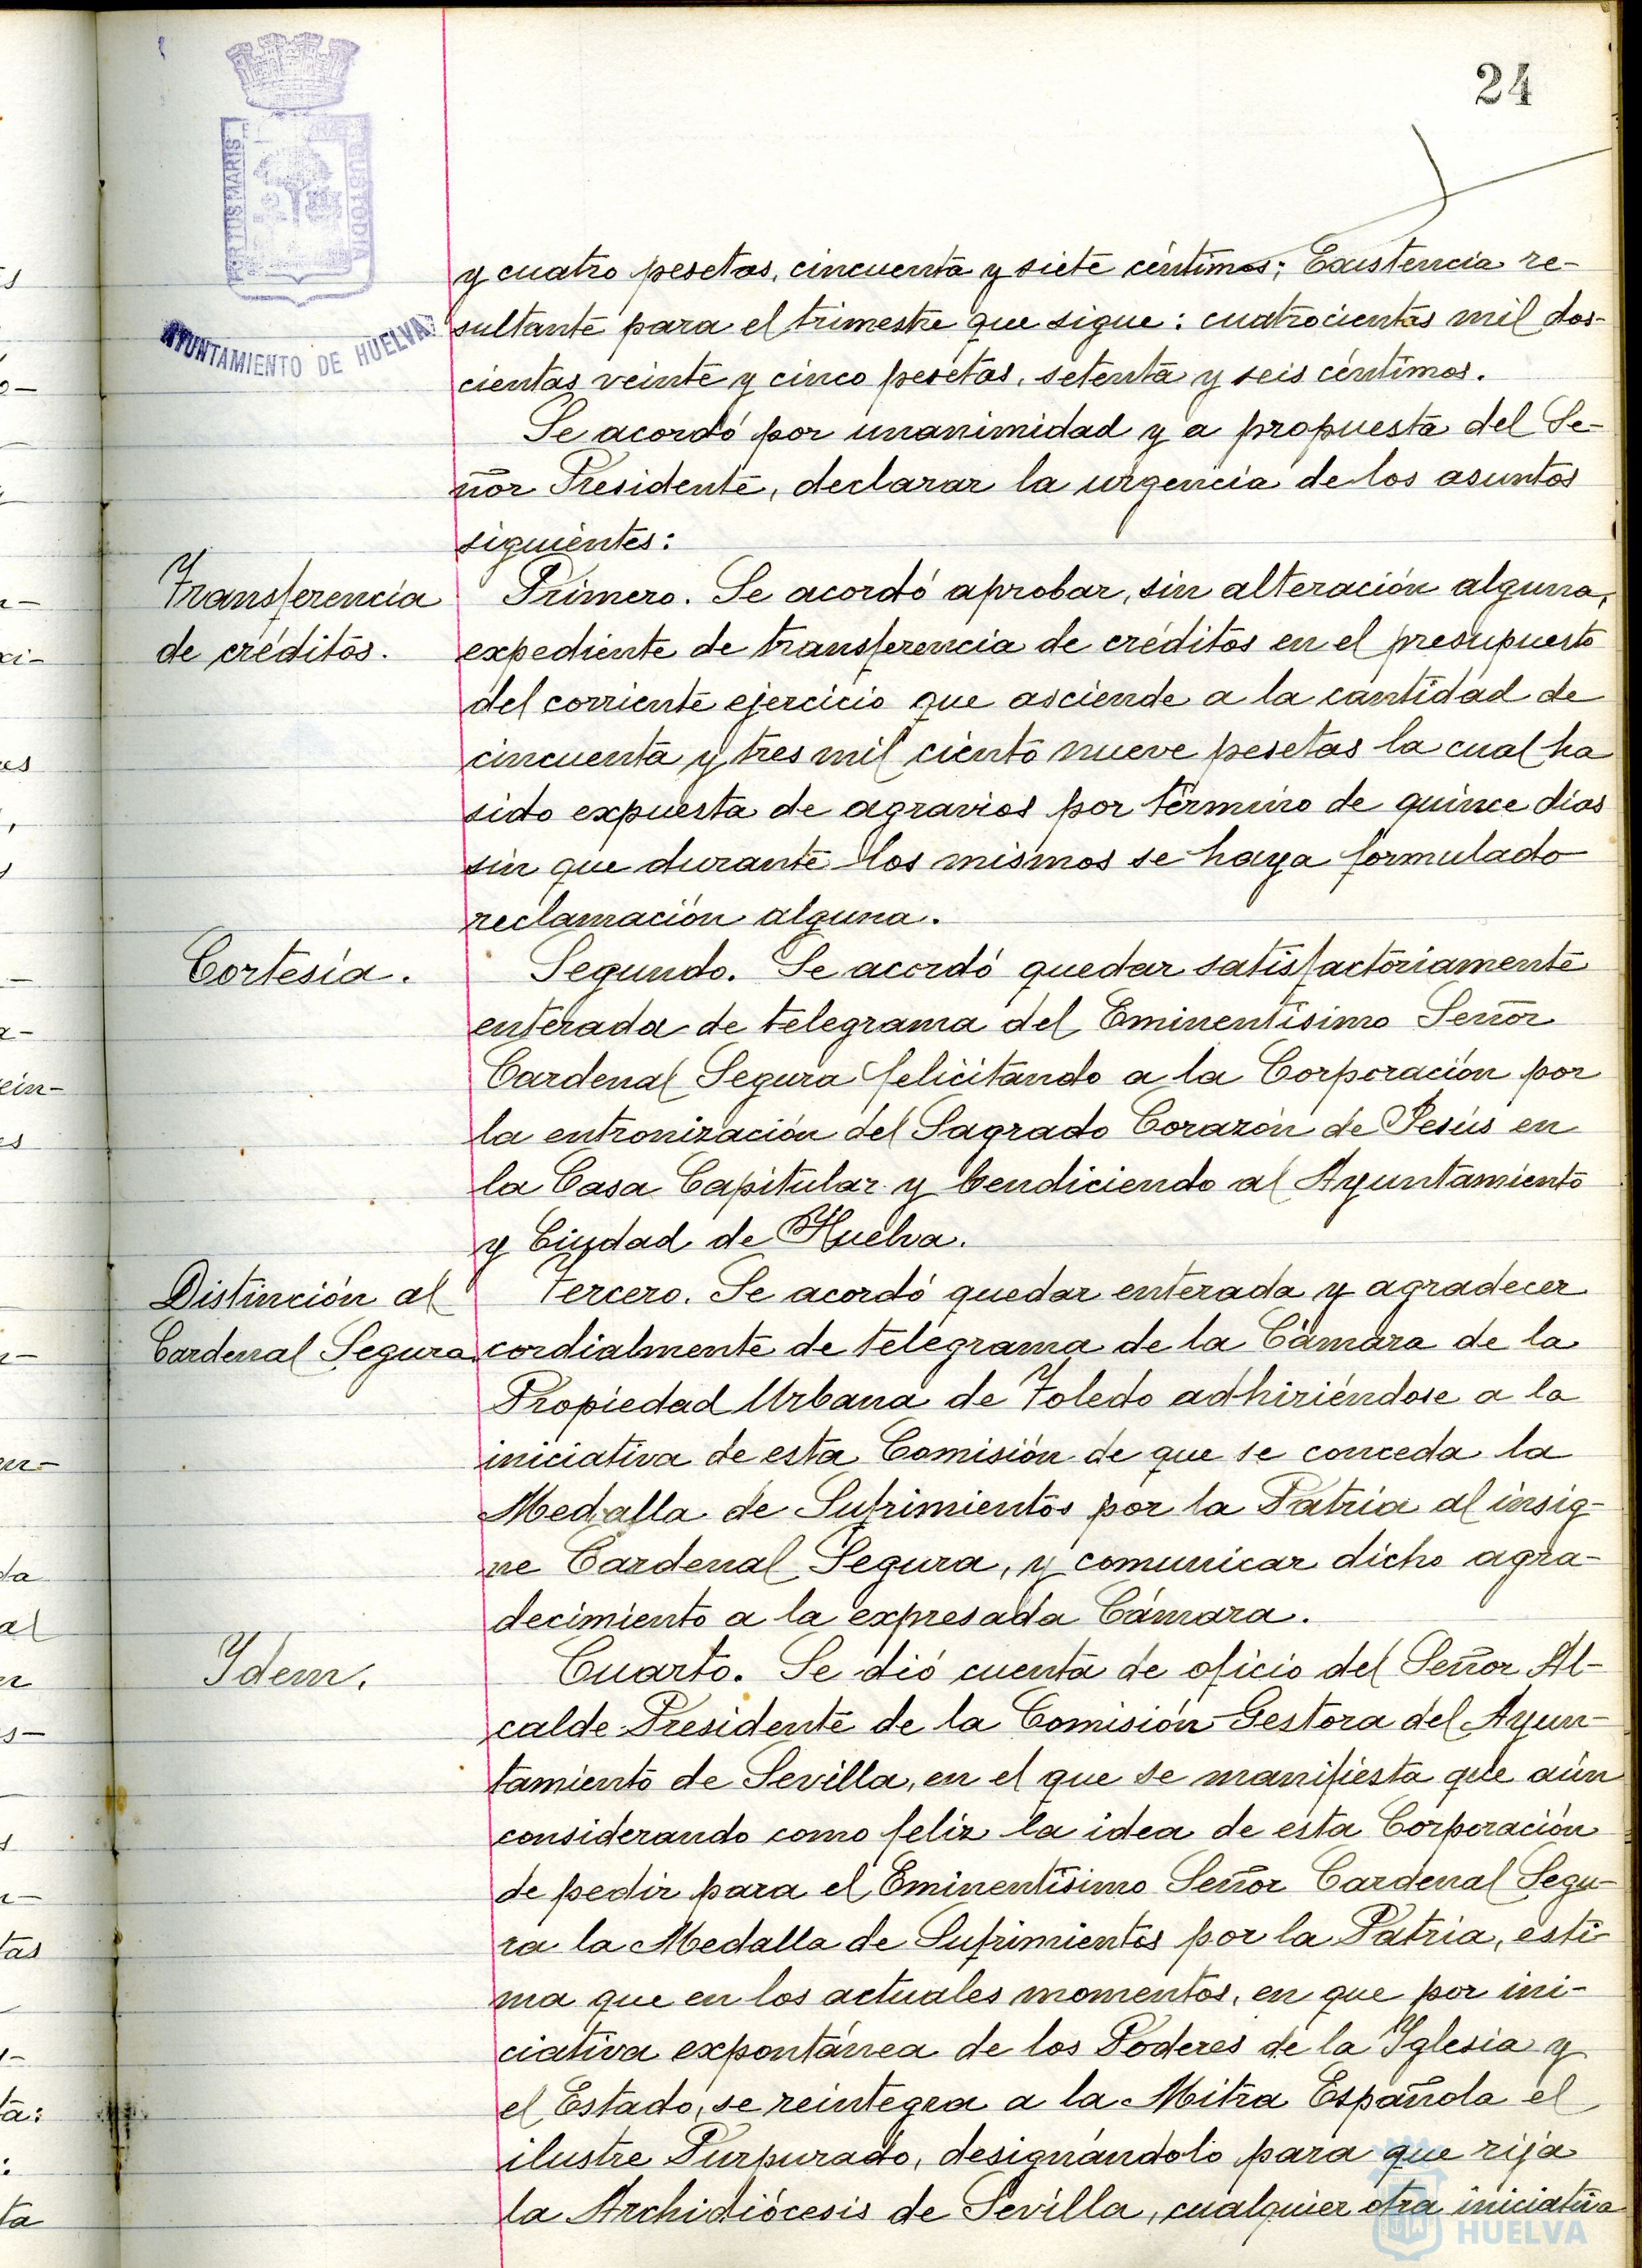 24
PORTUS MARIS
CUSTODIA
AYUNTAMIENTO DE HUELVA
y cuatro pesetas, cincuenta y siete céntimos; Existencia re-
sultante para el trimestre que sigue: cuatrocientas mil dos-
cientas veinte y cinco pesetas, setenta y seis céntimos.
Se acordó por unanimidad y a propuesta del Se-
ñor Presidente, declarar la urgencia de los asuntos
siguientes:
Transferencia
de créditos.
Primero. Se acordó aprobar, sin alteración alguna,
expediente de transferencia de créditos en el presupuesto
del corriente ejercicio que asciende a la cantidad de
cincuenta y tres mil ciento nueve pesetas la cual ha
sido expuesta de agravios por término de quince días
sin que durante los mismos se haya formulado
reclamación alguna.
Cortesía.
Segundo. Se acordó quedar satisfactoriamente
enterada de telegrama del Eminentísimo Señor
Cardenal Segura felicitando a la Corporación por
la entronización del Sagrado Corazón de Jesús en
la Casa Capitular y bendiciendo al Ayuntamiento
y Ciudad de Huelva.
Distinción al
Cardenal Segura
Tercero. Se acordó quedar enterada y agradecer
cordialmente de telegrama de la Cámara de la
Propiedad Urbana de Toledo adhiriéndose a la
iniciativa de esta Comisión de que se conceda la
Medalla de Sufrimientos por la Patria al insig-
ne Cardenal Segura, y comunicar dicho agra-
decimiento a la expresada Cámara.
Idem.
Cuarto. Se dió cuenta de oficio del Señor Al-
calde Presidente de la Comisión Gestora del Ayun-
tamiento de Sevilla, en el que se manifiesta que aún
considerando como feliz la idea de esta Corporación
de pedir para el Eminentísimo Señor Cardenal Segu-
ra la Medalla de Sufrimientos por la Patria, esti-
ma que en los actuales momentos, en que por ini-
ciativa expontánea de los Poderes de la Iglesia y
el Estado, se reintegra a la Mitra Española el
ilustre Purpurado, designándolo para que rija
la Archidiócesis de Sevilla, cualquier otra iniciativa
HUELVA